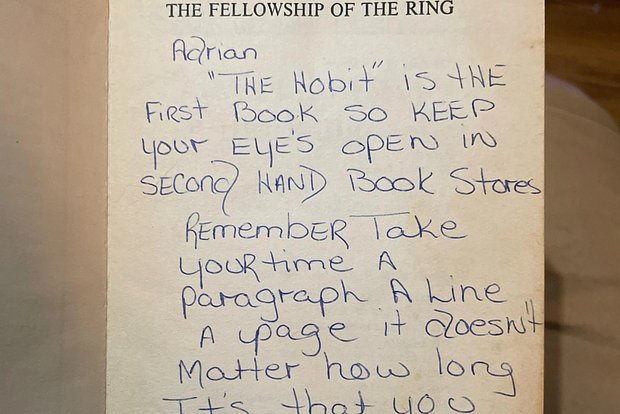 THE FELLOWSHIP OF THE RING
Adrian
"THE Hobit" is tHE
FiRSt Book so KEEP
your EyE's opEn in
SEcond HAND Book Stores
REmembER Take
youR time A
paragraph A Line
A page it doesn't
Matter how long
It's that you